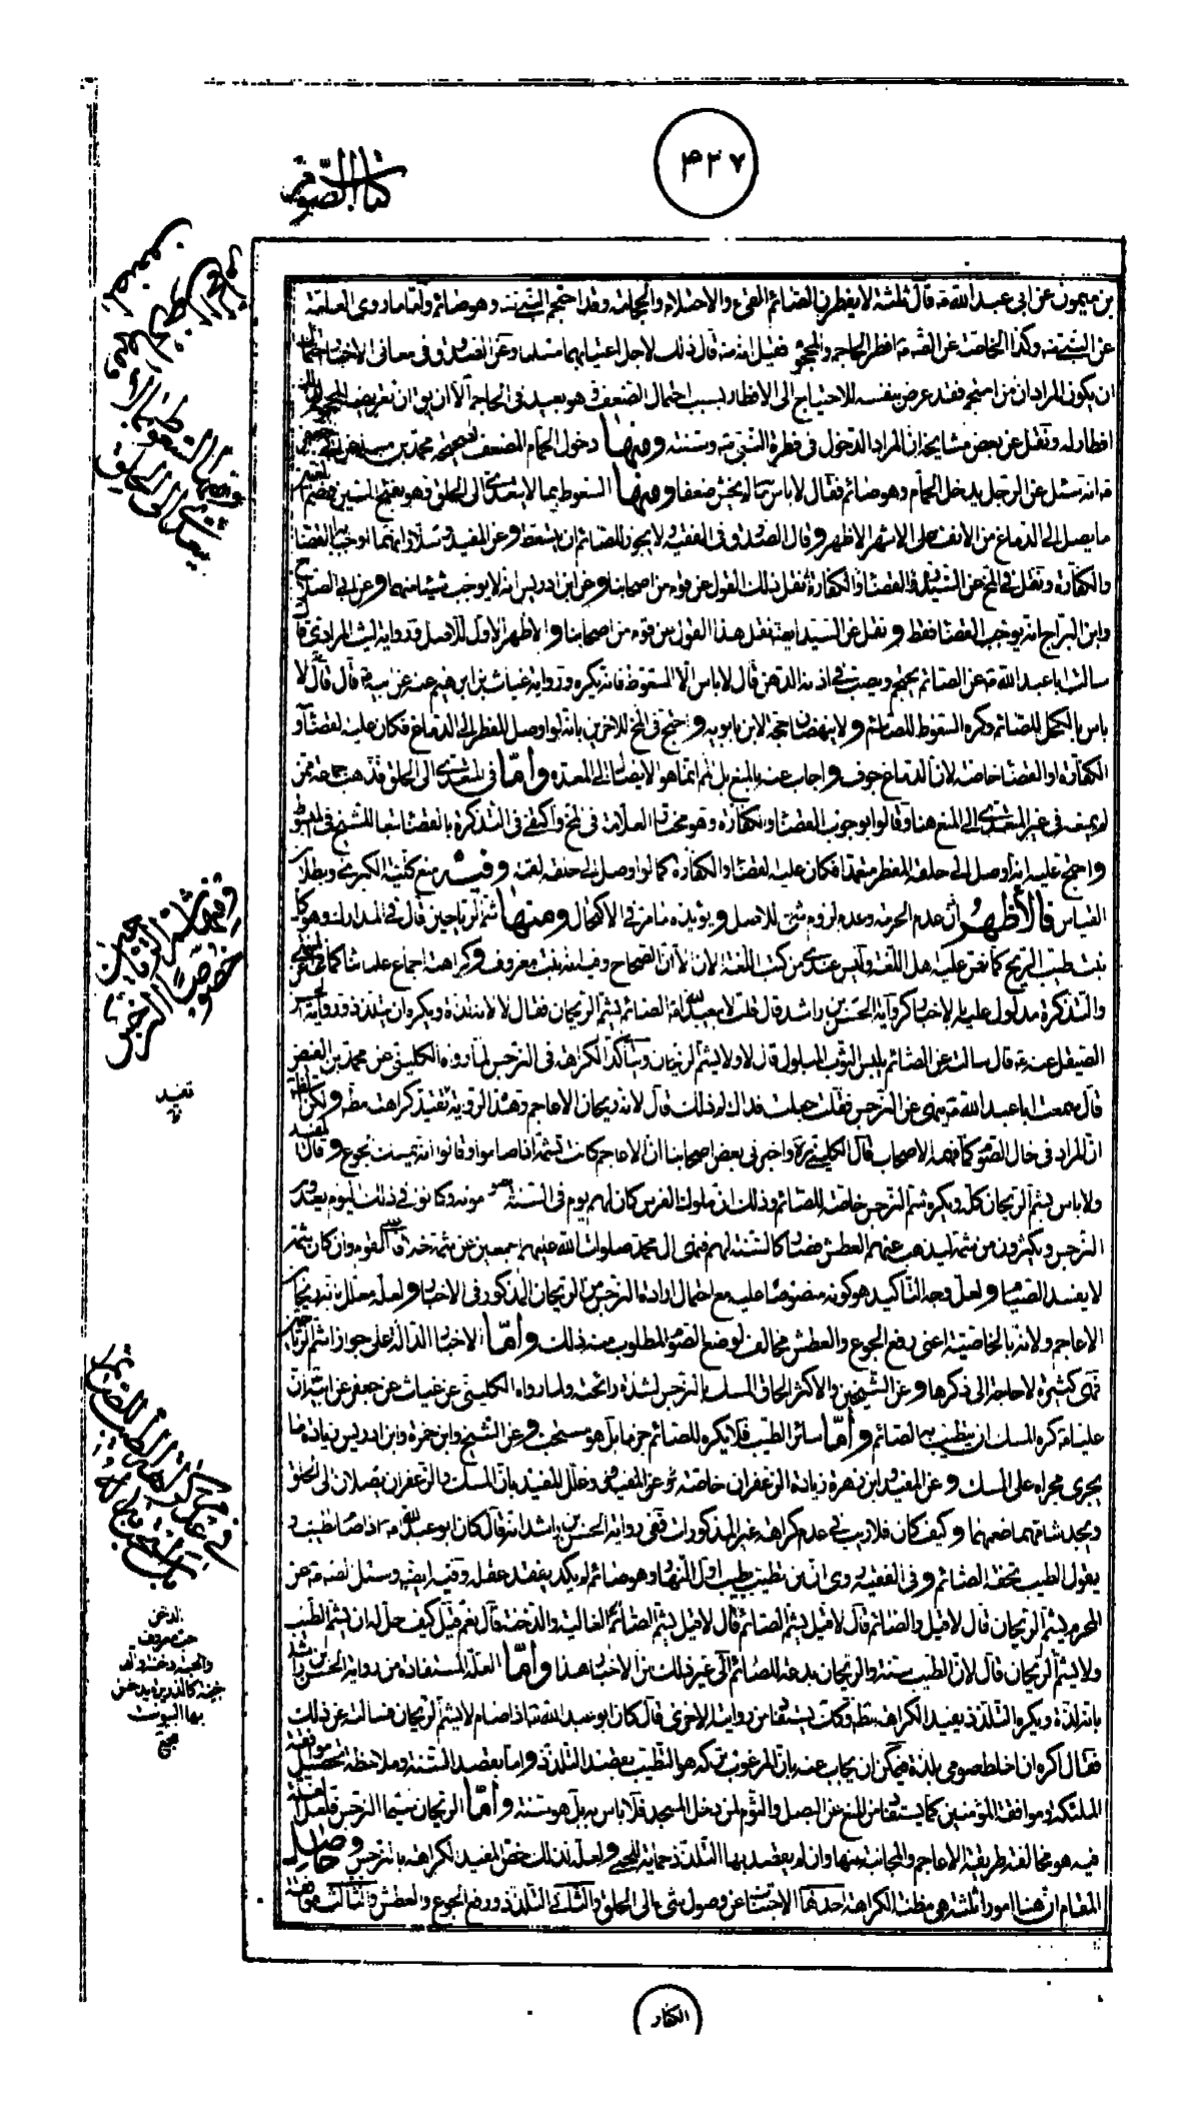 ٤٢٧
كتاب الصوم
بن ميمون عن ابى عبد الله ع قال ثلثة لا يفطرن الصائم القىء والاحتلام والحجامة وقد احتجم النبى ص وهو صائم واما ما روى العامة
عن النبى ص وكذا الخاصة عن الصم افطر الحاجم والمحجوم فقيل انه ص قال ذلك لاجل اغتيابهما مسلما وعن الصدوق فى معانى الاخبار احتمال
ان يكون المراد ان من احتجم فقد عرض بنفسه للاحتياج الى الافطار بسبب احتمال الضعف وهو بعيد فى الحاجم الا ان يراد ان تعريضه المحجوم
افطار له ونقل عن بعض مشايخه ان المراد الدخول فى فطرة النبى ص وسنته ومنها دخول الحمام المضعف لصحيحة محمد بن مسلم عن
انه سئل عن الرجل يدخل الحمام وهو صائم فقال لا باس ما لم يخش ضعفا ومنها السعوط بما لا يتعدى الى الحلق وهو بفتح السين
ما يصل الى الدماغ من الانف على الاشهر الاظهر وقال الصدوق فى الفقيه لا يجوز للصائم ان يتسعط وعن المفيد وسلار انهما اوجبا القضاء
والكفارة ونقل فى لخ عن السيد انه القضاء والكفارة نقل ذلك القول عن قوم من اصحابنا وعن ابن ادريس انه لا يوجب شيئا منهما وعن ابى الصلاح
وابن البراج انه يوجب القضاء فقط ونقل عن السيد ايضا نقل هذا القول عن قوم من اصحابنا والاظهر الاول للاصل ورواية ليث المرادى قال
سالت ابا عبد الله ع عن الصائم يحتجم ويصب فى اذنه الدهن قال لا باس الا السعوط فانه يكره ورواية غياث بن ابراهيم عنه عن ابيه ع قال قال لا
باس بالكحل للصائم وكره السعوط للصائم ولا ينهضان حجة لابن بابويه واحتج فى لخ للاخرين بانه اوصل المفطر الى الدماغ فكان عليه القضاء و
الكفارة او القضاء خاصة لان الدماغ جوف واجاب عنه بالمنع بل انما هو الايصال الى المعدة واما فى المتعدى الى الحلق فذهب جماعة ممن
لم يمنعه فى غير المتعدى الى المنع هنا وقالوا بوجوب القضاء والكفارة وهو مختار العلامة فى لخ واكتفى فى التذكرة بالقضاء تبعا للشيخ فى المبسوط
واحتج عليه انه اوصل الى حلقه المفطر متعمدا فكان عليه القضاء والكفارة كما لو اوصل الى حلقه لقمة وفيه منع كلية الكبرى وبطلان
القياس فالاظهر اذن عدم الحرمة وعدم لزوم شئ للاصل ويؤيده ما مر فى الاكتحال ومنها شم الرياحين قال فى المدارك وهو كل
نبت طيب الريح كما نص عليه اهل اللغة وليس عندى من كتب اللغة الان الا الصحاح وفيه انه نبت معروف وكراهته اجماع علمائنا كما فى
والتذكرة مدلول عليه بالاخبار كرواية الحسن بن راشد قال قلت لابيعبد الله ع الصائم يشم الريحان فقال لا لانه لذة ويكره ان يتلذذ ورواية
الصيقل عنه ع قال سالت عن الصائم يلبس الثوب المبلول قال لا ولا يشم الريحان ويتأكد الكراهة فى النرجس لما رواه الكلينى عن محمد بن الفيض
قال سمعت ابا عبد الله ع ينهى عن النرجس فقلت جعلت فداك لم ذلك قال لانه ريحان الاعاجم وهذه الرواية تفيد كراهته مطلقا ولكن
ان المراد فى حال الصوم كما فهمه الاصحاب قال الكلينى ره واخبرنى بعض اصحابنا ان الاعاجم كانت تشمه اذا صاموا وقالوا انه يمسك الجوع وقال المفيد
ولا باس بشم الريحان كله ويكره شم النرجس خاصة للصائم وذلك ان ملوك الفرس كان لهم يوم فى السنة يصومونه وكانوا فى ذلك اليوم يعدون
النرجس ويكثرون من شمه ليذهب عنهم العطش فصار كالسنة لهم فنهى ال محمد صلوات الله عليهم اجمعين عن شمه خلافا للقوم وان كان شمه
لا يفسد الصيام ولعل وجه التاكيد هو كونه منصوصا عليه مع احتمال ارادة النرجس من الريحان المذكور فى الاخبار ولعله معلل بانه ريحان
الاعاجم ولانه بالخاصية اعنى رفع الجوع والعطش مخالف لوضع الصوم المطلوب منه ذلك واما الاخبار الدالة على جواز اشم الرياحين
فهى كثيرة لا حاجة الى ذكرها وعن الشيخين والاكثر الحاق المسك بالنرجس لشدة رائحته ولما رواه الكلينى عن غياث عن جعفر عن ابيه ان
عليا ع كره المسك ان يتطيب به الصائم واما سائر الطيب فلا يكره للصائم جزما بل هو مستحب وعن الشيخ وابن حمزة وابن ادريس زيادة ما
يجرى مجراه على المسك وعن المفيد وابن زهرة زيادة الزعفران خاصة وعن المفيد وعلل المفيد بان المسك والزعفران يصلان الى الحلق
ويجد شامهما طعمهما وكيف كان فلا ريب فى عدم كراهة غير المذكورات ففى رواية الحسن بن راشد انه قال كان ابو عبد الله ع اذا صام تطيب و
يقول الطيب تحفة الصائم وفى الفقيه روى ان من تطيب بطيب اول النهار وهو صائم لم يكد يفقد عقله وفيه ايضا وسئل الصم عن
المحرم يشم الريحان قال لا قيل والصائم قال لا قيل يشم الصائم الغالية والدخنة قال نعم قيل كيف حل له ان يشم الطيب
ولا يشم الريحان قال لان الطيب سنة والريحان بدعة للصائم الى غير ذلك من الاخبار هذا واما العلة المستفادة من رواية الحسن بن راشد
بانه لذة ويكره التلذذ يفيد الكراهة مطلقا وكذا يستفاد من روايته الاخرى قال كان ابو عبد الله ع اذا صام لا يشم الريحان فسالته عن ذلك
فقال اكره ان اخلط صومى بلذة فيمكن ان يجاب عنه بان المرغوب تركه هو التطيب بقصد التلذذ واما بقصد السنة وملاحظة تحصيل موافقة
الملئكة وموافقة المؤمنين كما يستفاد من المنع عن البصل والثوم لمن دخل المسجد فلا باس به بل هو سنة واما الريحان سيما النرجس فلعل العلة
فيه هو مخالفة طريقة الاعاجم والمجانبة عنها وان لم يقصد بها التلذذ حماية للحمى ولعله لذلك خص المفيد الكراهة بالنرجس وحاصل
المقام ان هنا امورا ثلثة هى مظنة الكراهة احدها الاجتناب عن وصول شئ الى الحلق والثانى التلذذ ورفع الجوع والعطش والثالث موافقة
الكفار
وفيها شم الرياحين
خصوصا النرجس
تفيد
فى عدم كراهة الطيب للصائم
الدخن
حب معروف
والحبة دخنة والدخنة
كالذريرة يدخن
بها البيوت